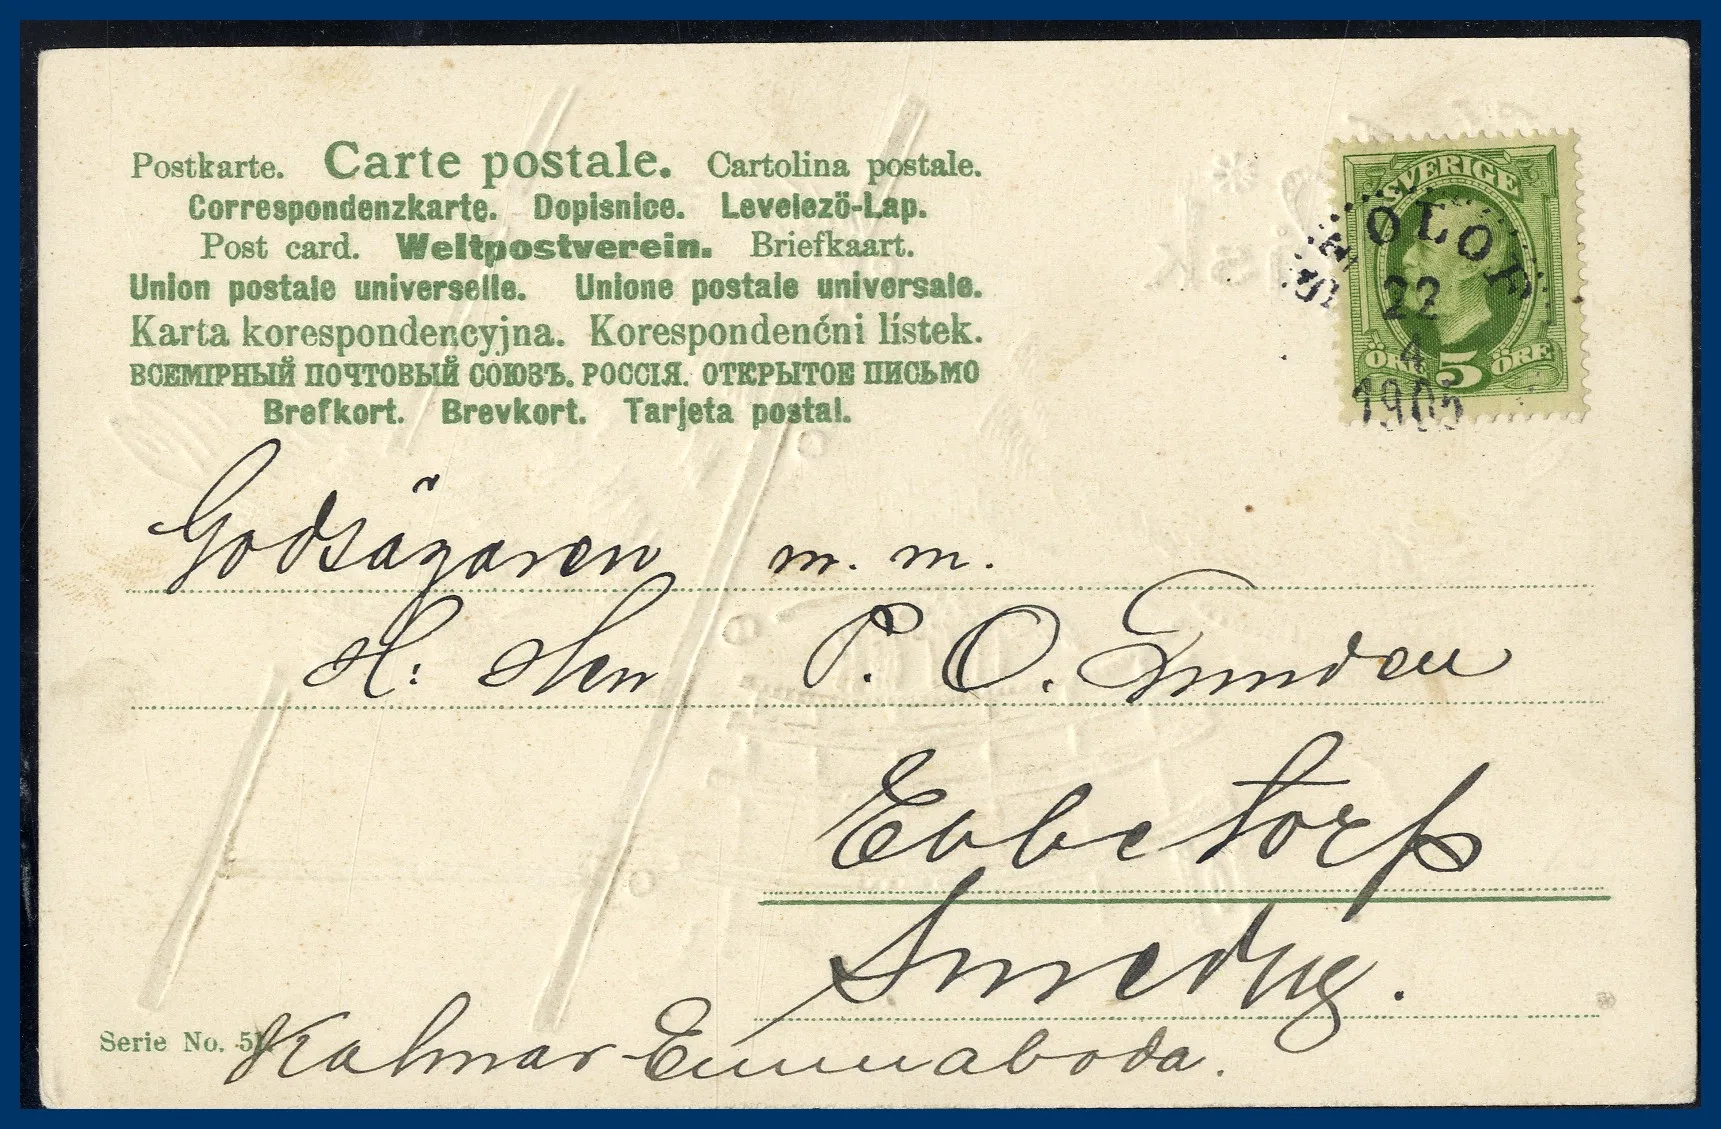 Postkarte. Carte postale. Cartolina postale.
Correspondenzkarte. Dopisnice. Levelezö-Lap.
Post card. Weltpostverein. Briefkaart.
Union postale universelle. Unione postale universale.
Karta korespondencyjna. Korespondenčni lístek.
ВСЕМІРНЫЙ ПОЧТОВЫЙ СОЮЗЪ. РОССІЯ. ОТКРЫТОЕ ПИСЬМО
Brefkort. Brevkort. Tarjeta postal.
SVERIGE
22
4
1905
ÖRE 5 ÖRE
Godsägaren m. m.
H. Herr P. O.
Ebbetorp
Smedby.
Serie No.
Kalmar Emmaboda.